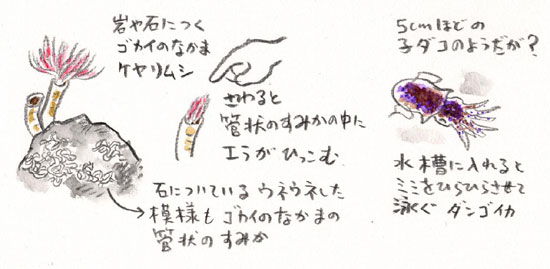 岩や石につく
ゴカイのなかま
ケヤリムシ
さわると
管状のすみかの中に
エラがひっこむ
石についているウネウネした
模様もゴカイのなかまの
管状のすみか
5cmほどの
子ダコのようだが?
水槽に入れると
ミミをひらひらさせて
泳ぐ ダンゴイカ